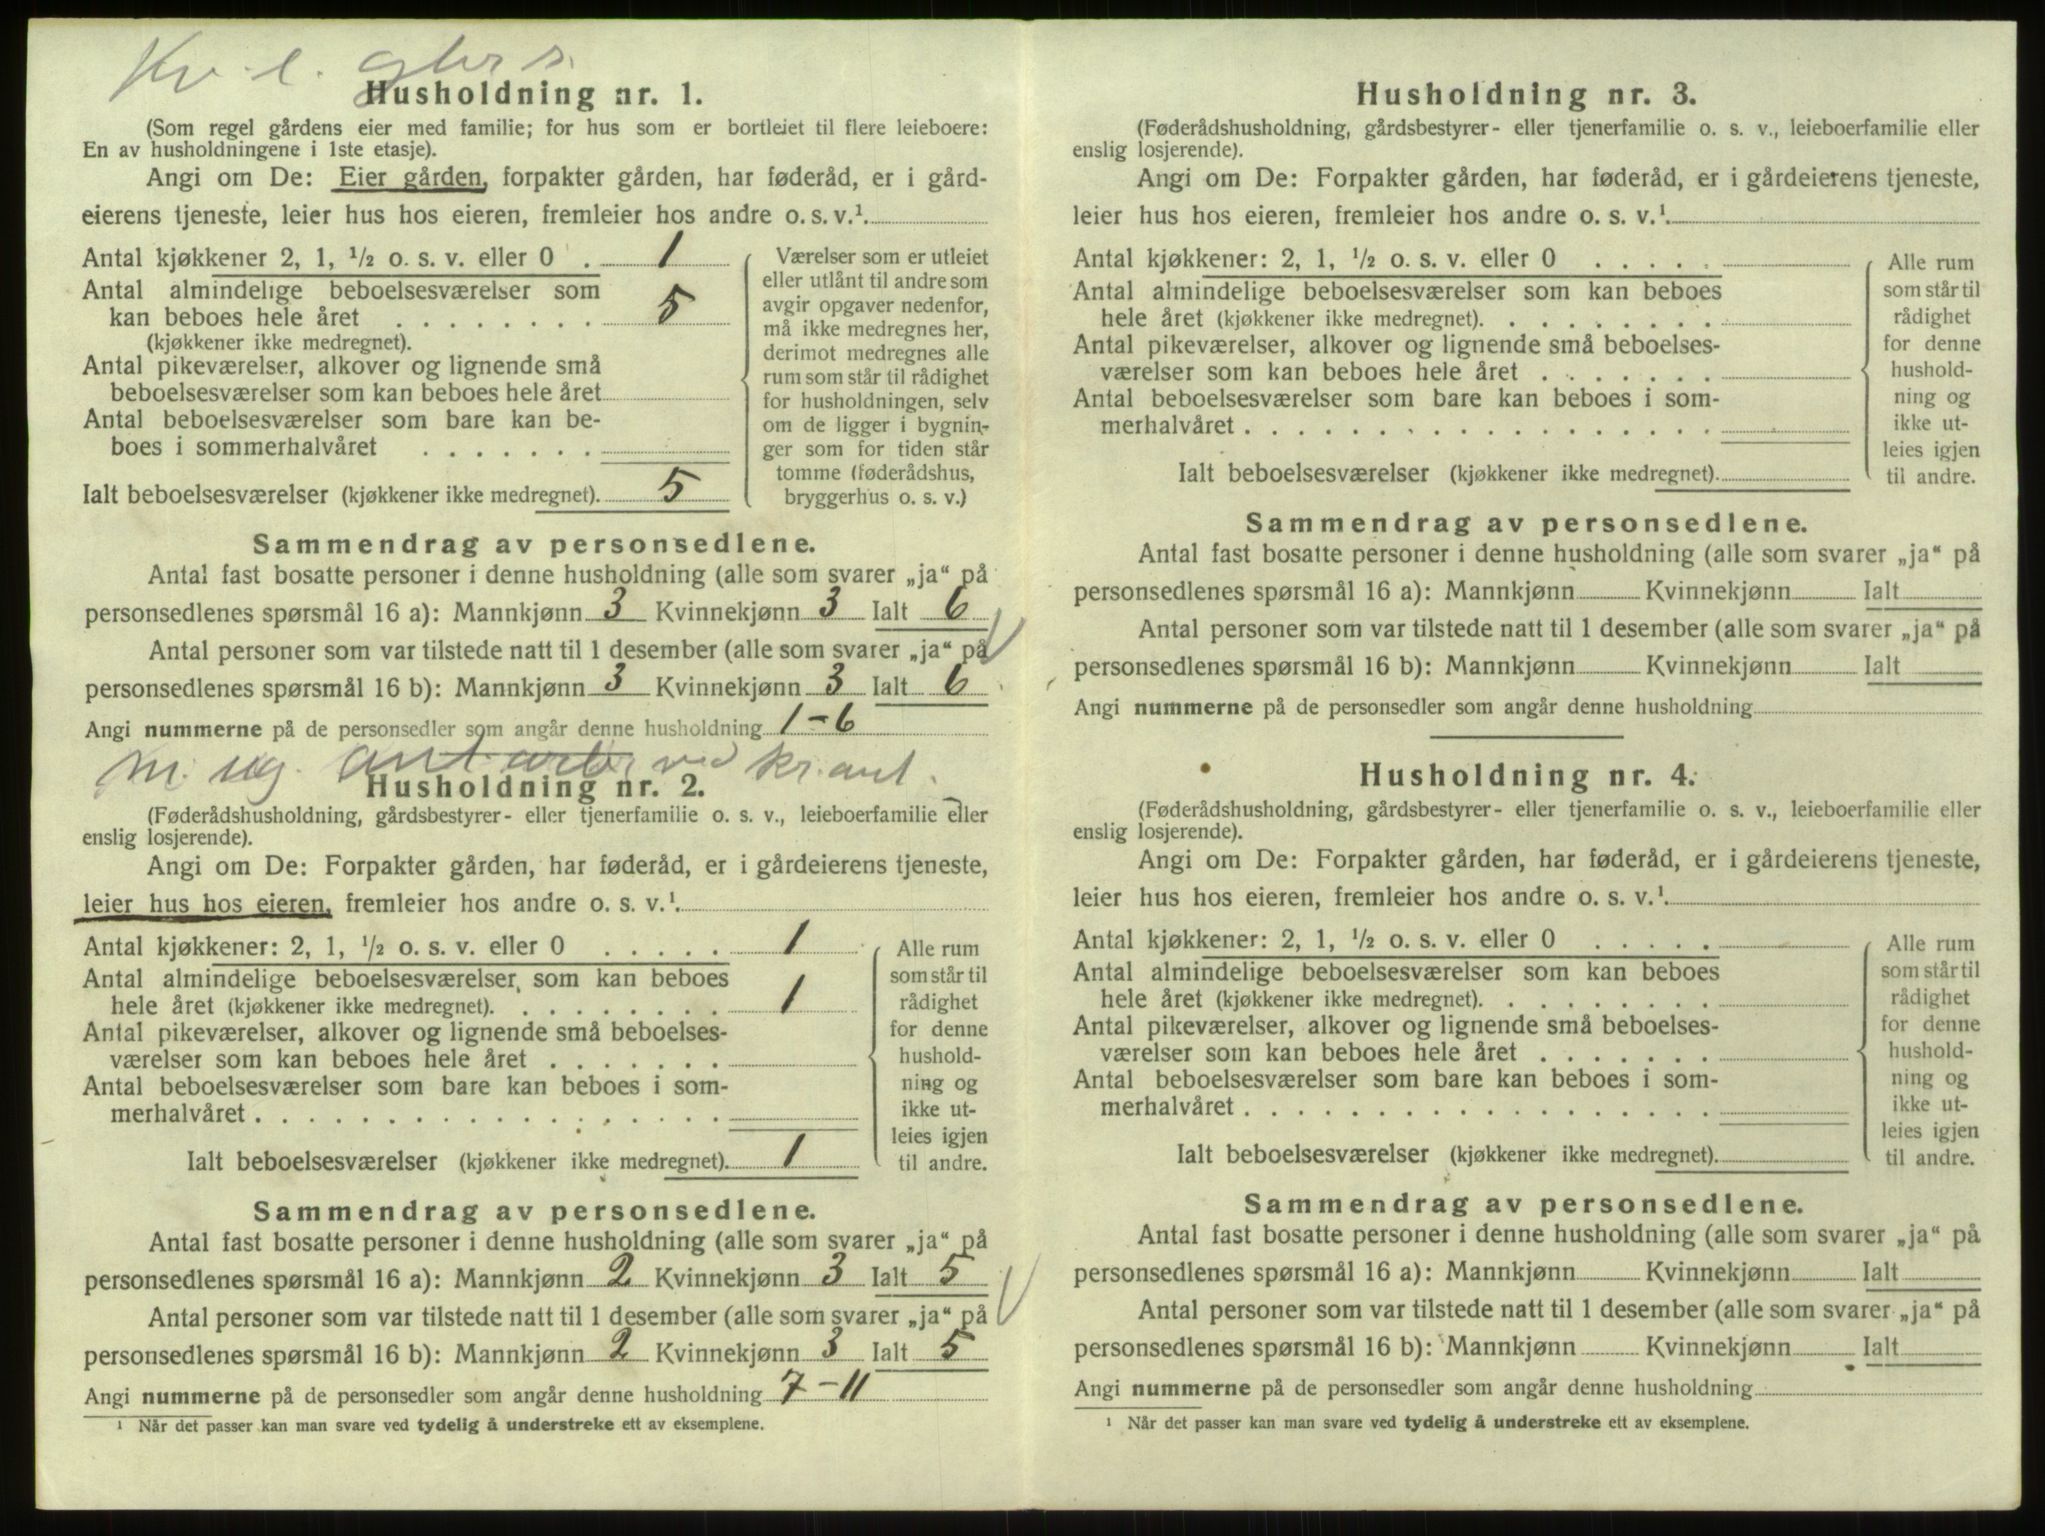 Kv. l. gbrs.
Husholdning nr. 1.
(Som regel gårdens eier med familie; for hus som er bortleiet til flere leieboere:
En av husholdningene i 1ste etasje).
Angi om De: Eier gården, forpakter gården, har føderåd, er i gård-
eierens tjeneste, leier hus hos eieren, fremleier hos andre o. s. v.¹.
Antal kjøkkener 2, 1, ½ o. s. v. eller 0 . 1
Antal almindelige beboelsesværelser som
kan beboes hele året . . . . . . . . 5
(kjøkkener ikke medregnet).
Antal pikeværelser, alkover og lignende små
beboelsesværelser som kan beboes hele året
Antal beboelsesværelser som bare kan be-
boes i sommerhalvåret . . . . . . .
Ialt beboelsesværelser (kjøkkener ikke medregnet). 5
Værelser som er utleiet
eller utlånt til andre som
avgir opgaver nedenfor,
må ikke medregnes her,
derimot medregnes alle
rum som står til rådighet
for husholdningen, selv
om de ligger i bygnin-
ger som for tiden står
tomme (føderådshus,
bryggerhus o. s. v.)
Sammendrag av personsedlene.
Antal fast bosatte personer i denne husholdning (alle som svarer „ja“ på
personsedlenes spørsmål 16 a): Mannkjønn 3 Kvinnekjønn 3 Ialt 6
Antal personer som var tilstede natt til 1 desember (alle som svarer „ja“ på
personsedlenes spørsmål 16 b): Mannkjønn 3 Kvinnekjønn 3 Ialt 6
Angi nummerne på de personsedler som angår denne husholdning 1-6
m. ug. ant. arb. ved kr. ant.
Husholdning nr. 2.
(Føderådshusholdning, gårdsbestyrer- eller tjenerfamilie o. s. v., leieboerfamilie eller
enslig losjerende).
Angi om De: Forpakter gården, har føderåd, er i gårdeierens tjeneste,
leier hus hos eieren, fremleier hos andre o. s. v.¹.
Antal kjøkkener: 2, 1, ½ o. s. v. eller 0 . . . . . 1
Antal almindelige beboelsesværelser som kan beboes
hele året (kjøkkener ikke medregnet). . . . . . . . . 1
Antal pikeværelser, alkover og lignende små beboelses-
værelser som kan beboes hele året . . . . . . .
Antal beboelsesværelser som bare kan beboes i som-
merhalvåret . . . . . . . . . . . . . . . . . .
Ialt beboelsesværelser (kjøkkener ikke medregnet). 1
Alle rum
som står til
rådighet
for denne
hushold-
ning og
ikke ut-
leies igjen
til andre.
Sammendrag av personsedlene.
Antal fast bosatte personer i denne husholdning (alle som svarer „ja“ på
personsedlenes spørsmål 16 a): Mannkjønn 2 Kvinnekjønn 3 Ialt 5
Antal personer som var tilstede natt til 1 desember (alle som svarer „ja“ på
personsedlenes spørsmål 16 b): Mannkjønn 2 Kvinnekjønn 3 Ialt 5
Angi nummerne på de personsedler som angår denne husholdning 7-11
¹ Når det passer kan man svare ved tydelig å understreke ett av eksemplene.
Husholdning nr. 3.
(Føderådshusholdning, gårdsbestyrer- eller tjenerfamilie o. s. v., leieboerfamilie eller
enslig losjerende).
Angi om De: Forpakter gården, har føderåd, er i gårdeierens tjeneste,
leier hus hos eieren, fremleier hos andre o. s. v.¹.
Antal kjøkkener: 2, 1, ½ o. s. v. eller 0 . . . . .
Antal almindelige beboelsesværelser som kan beboes
hele året (kjøkkener ikke medregnet). . . . . . . . .
Antal pikeværelser, alkover og lignende små beboelses-
værelser som kan beboes hele året . . . . . . .
Antal beboelsesværelser som bare kan beboes i som-
merhalvåret . . . . . . . . . . . . . . . . . .
Ialt beboelsesværelser (kjøkkener ikke medregnet).
Alle rum
som står til
rådighet
for denne
hushold-
ning og
ikke ut-
leies igjen
til andre.
Sammendrag av personsedlene.
Antal fast bosatte personer i denne husholdning (alle som svarer „ja“ på
personsedlenes spørsmål 16 a): Mannkjønn Kvinnekjønn Ialt
Antal personer som var tilstede natt til 1 desember (alle som svarer „ja“ på
personsedlenes spørsmål 16 b): Mannkjønn Kvinnekjønn Ialt
Angi nummerne på de personsedler som angår denne husholdning
Husholdning nr. 4.
(Føderådshusholdning, gårdsbestyrer- eller tjenerfamilie o. s. v., leieboerfamilie eller
enslig losjerende).
Angi om De: Forpakter gården, har føderåd, er i gårdeierens tjeneste,
leier hus hos eieren, fremleier hos andre o. s. v.¹.
Antal kjøkkener: 2, 1, ½ o. s. v. eller 0 . . . . .
Antal almindelige beboelsesværelser som kan beboes
hele året (kjøkkener ikke medregnet). . . . . . . . .
Antal pikeværelser, alkover og lignende små beboelses-
værelser som kan beboes hele året . . . . . . .
Antal beboelsesværelser som bare kan beboes i som-
merhalvåret . . . . . . . . . . . . . . . . . .
Ialt beboelsesværelser (kjøkkener ikke medregnet).
Alle rum
som står til
rådighet
for denne
hushold-
ning og
ikke ut-
leies igjen
til andre.
Sammendrag av personsedlene.
Antal fast bosatte personer i denne husholdning (alle som svarer „ja“ på
personsedlenes spørsmål 16 a): Mannkjønn Kvinnekjønn Ialt
Antal personer som var tilstede natt til 1 desember (alle som svarer „ja“ på
personsedlenes spørsmål 16 b): Mannkjønn Kvinnekjønn Ialt
Angi nummerne på de personsedler som angår denne husholdning
¹ Når det passer kan man svare ved tydelig å understreke ett av eksemplene.